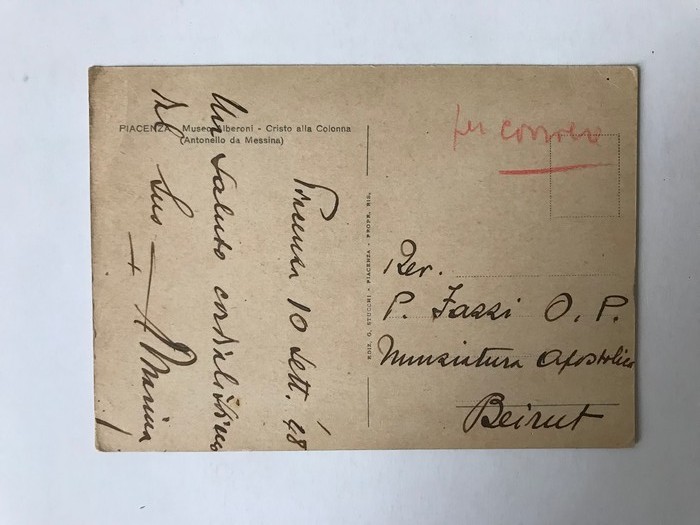 PIACENZA - Museo Alberoni - Cristo alla Colonna
(Antonello da Messina)
10 Sett. 48
Un saluto cordialissimo
dal Suo
+ A Marina
EDIZ. G. STUCCHI - PIACENZA - PROPR. RIS.
per corriere
Rev.
P. Fazzi O. P.
Nunziatura Apostolica
Beirut